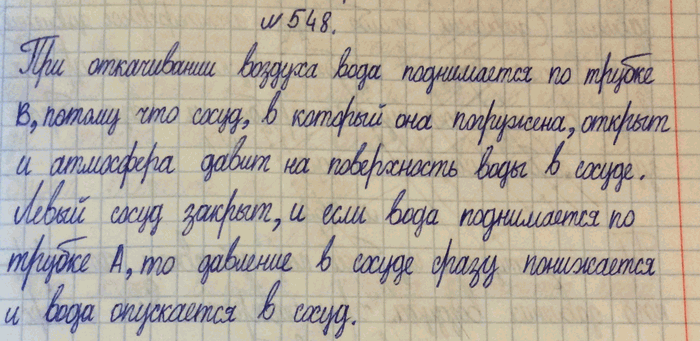 №548.
При откачивании воздуха вода поднимается по трубке
В, потому что сосуд, в который она погружена, открыт
и атмосфера давит на поверхность воды в сосуде.
Левый сосуд закрыт, и если вода поднимается по
трубке А, то давление в сосуде сразу понижается
и вода опускается в сосуд.